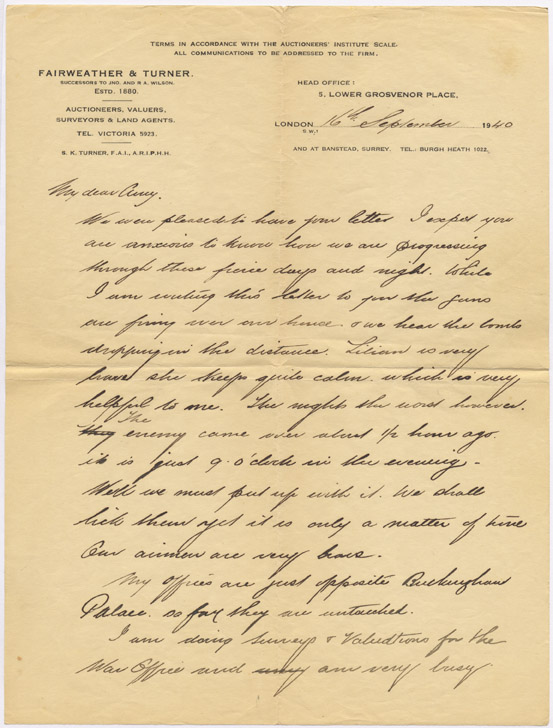 TERMS IN ACCORDANCE WITH THE AUCTIONEERS' INSTITUTE SCALE.
ALL COMMUNICATIONS TO BE ADDRESSED TO THE FIRM.
FAIRWEATHER & TURNER.
SUCCESSORS TO JNO. AND R A. WILSON.
ESTD. 1880.
AUCTIONEERS, VALUERS,
SURVEYORS & LAND AGENTS.
TEL. VICTORIA 5923.
S. K. TURNER, F.A.I., A.R.I.P.H.H.
HEAD OFFICE:
5, LOWER GROSVENOR PLACE,
LONDON 16th September 1940
S.W.1
AND AT BANSTEAD, SURREY. TEL.: BURGH HEATH 1032.
My dear Amy.
We were pleased to have your letter I expect you
are anxious to know how we are progressing
through these fierce days and night. While
I am writing this letter to you the guns
are firing over our house. & we hear the bombs
dropping in the distance. Lilian is very
brave she keeps quite calm. which is very
helpful to me. The nights the worst however.
They The enemy came over about 1/2 hour ago.
it is just 9. o'clock in the evening -
Well we must put up with it. We shall
lick them yet it is only a matter of time
Our airmen are very brave.
My offices are just opposite Buckingham
Palace. so far they are untouched.
I am doing Surveys & Valuations for the
War Office and am very busy.